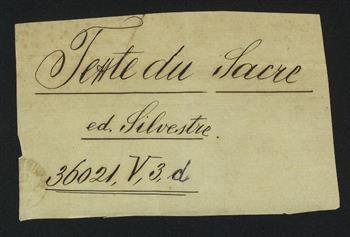 Texte du Sacre
ed. Silvestre.
36021, V, 3, d